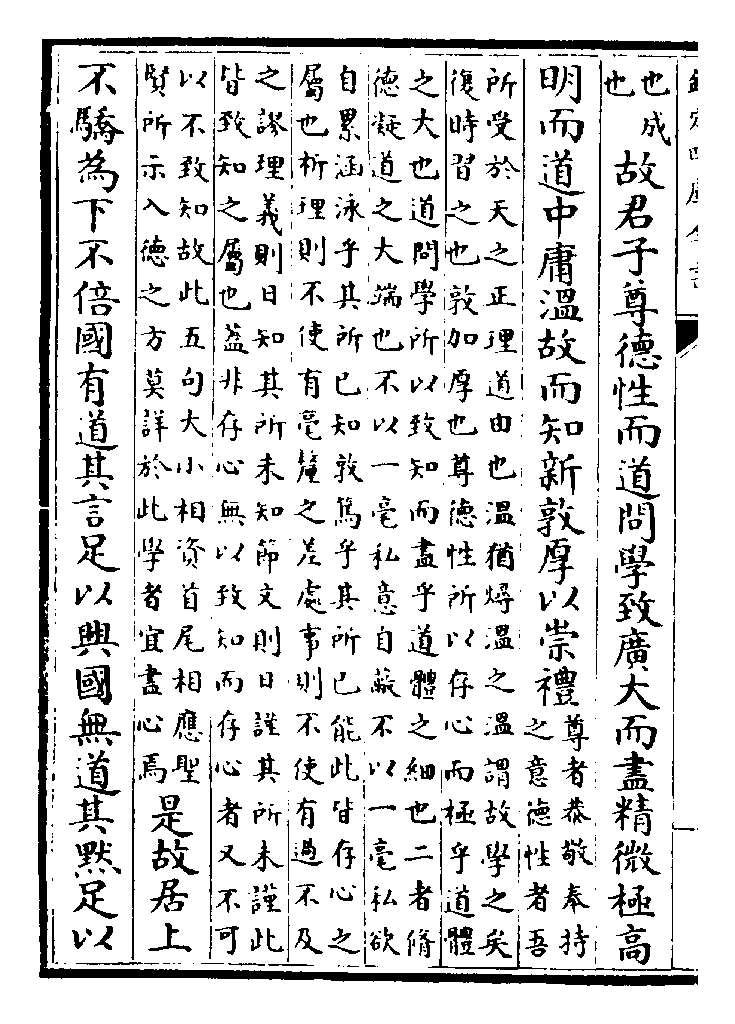 欽定四庫全書
也成
也
故君子尊德性而道問學致廣大而盡精微極高
明而道中庸溫故而知新敦厚以崇禮
尊者恭敬奉持
之意德性者吾
所受於天之正理道由也溫猶燖溫之溫謂故學之矣
復時習之也敦加厚也尊德性所以存心而極乎道體
之大也道問學所以致知而盡乎道體之細也二者脩
德凝道之大端也不以一毫私意自蔽不以一毫私欲
自累涵泳乎其所已知敦篤乎其所已能此皆存心之
屬也析理則不使有毫釐之差處事則不使有過不及
之謬理義則日知其所未知節文則日謹其所未謹此
皆致知之屬也葢非存心無以致知而存心者又不可
以不致知故此五句大小相資首尾相應聖
賢所示入德之方莫詳於此學者宜盡心焉
是故居上
不驕為下不倍國有道其言足以興國無道其默足以